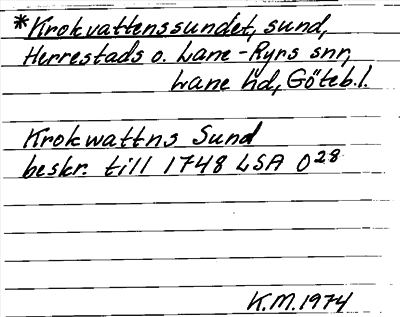 *Krokvattenssundet, sund,
Herrestads o. Lane-Ryrs snr,
Lane hd, Göteb. l.
Krokwattns Sund
beskr. till 1748 LSA O28
K.M. 1974